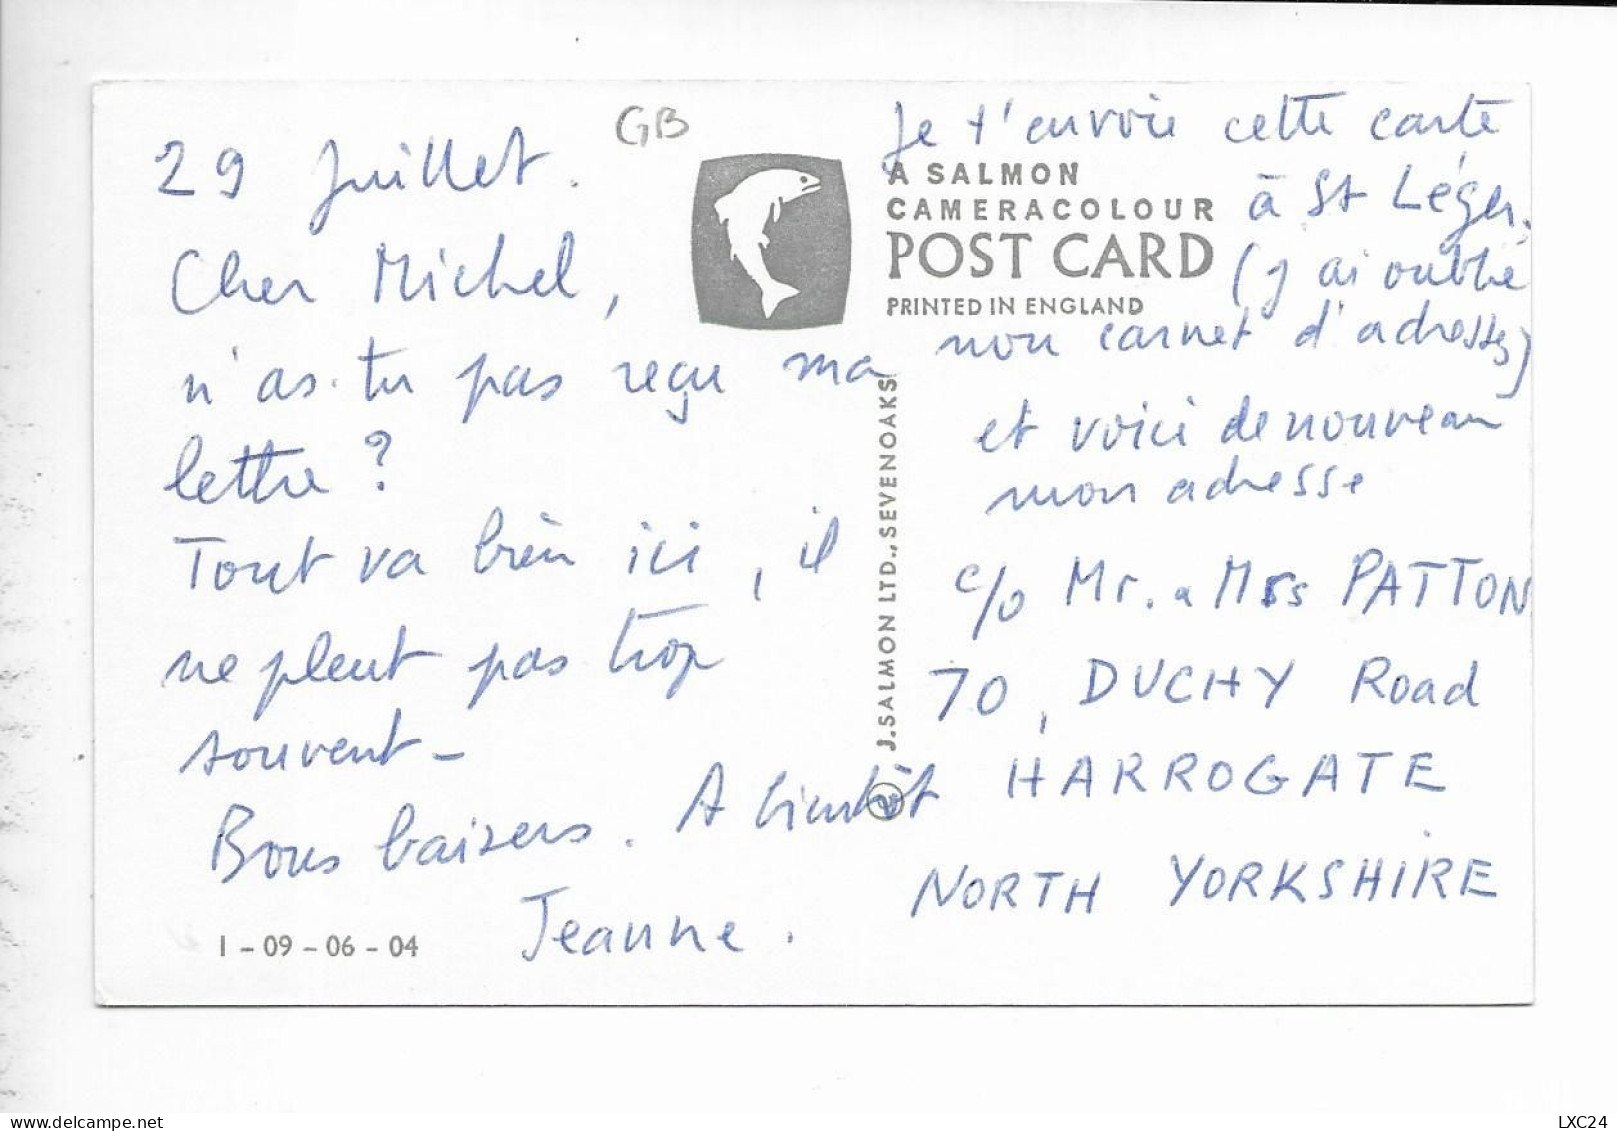 GB
29 Juillet.
Cher Michel,
n'as-tu pas reçu ma
lettre ?
Tout va bien ici, il
ne pleut pas trop
souvent -
Bons baisers. A bientôt
Jeanne.
1 - 09 - 06 - 04
A SALMON
CAMERACOLOUR
POST CARD
PRINTED IN ENGLAND
J. SALMON LTD., SEVENOAKS
Je t'envoie cette carte
à St Léger.
(j'ai oublié
mon carnet d'adresses)
et voici de nouveau
mon adresse
c/o Mr. & Mrs PATTON
70, DUCHY Road
HARROGATE
NORTH YORKSHIRE
www.delcampe.net
LXC24